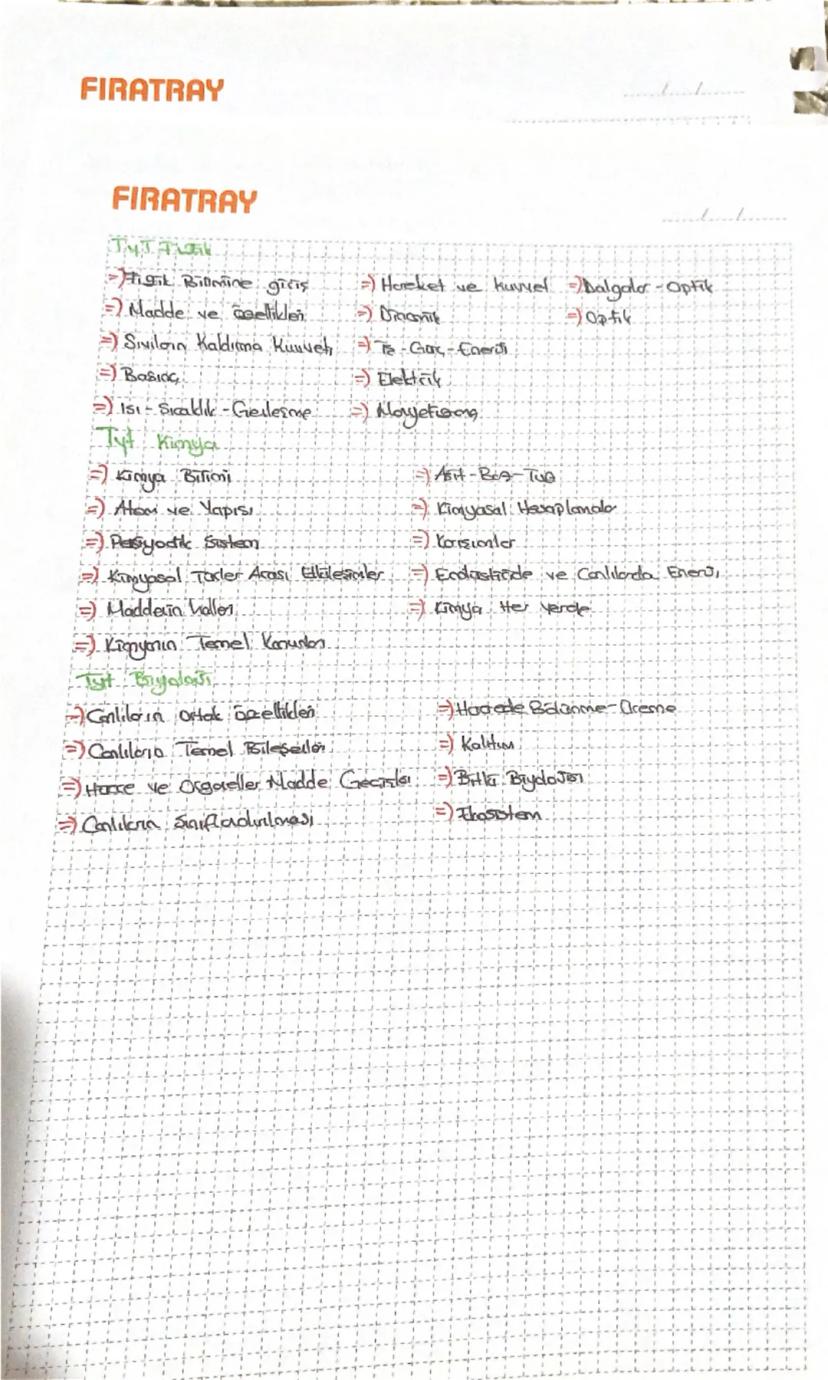 FIRATRAY
FIRATRAY
TYT Fizik
=) Fizik Bilimine giriş =) Hareket ve Kuvvet =) Dalgalar - Optik
=) Madde ve özellikleri =) Dinamik =) Optik
=) Sıvıların Kaldırma Kuvveti =) İş - Güç - Enerji
=) Basınç =) Elektrik
=) Isı - Sıcaklık - Genleşme =) Manyetizma
Tyt Kimya
=) Kimya Bilimi =) Asit - Baz - Tuz
=) Atom ve Yapısı =) Kimyasal Hesaplamalar
=) Periyodik Sistem =) Karışımlar
=) Kimyasal Türler Arası Etkileşimler =) Endüstride ve Canlılarda Enerji
=) Maddenin halleri =) Kimya Her yerde
=) Kimyanın Temel Kanunları
Tyt Biyoloji
=) Canlıların ortak özellikleri =) Hücrede Bölünme - Üreme
=) Canlıların Temel Bileşenleri =) Kalıtım
=) Hücre ve Organeller Madde Geçişleri =) Bitki Biyolojisi
=) Canlıların Sınıflandırılması =) Ekosistem